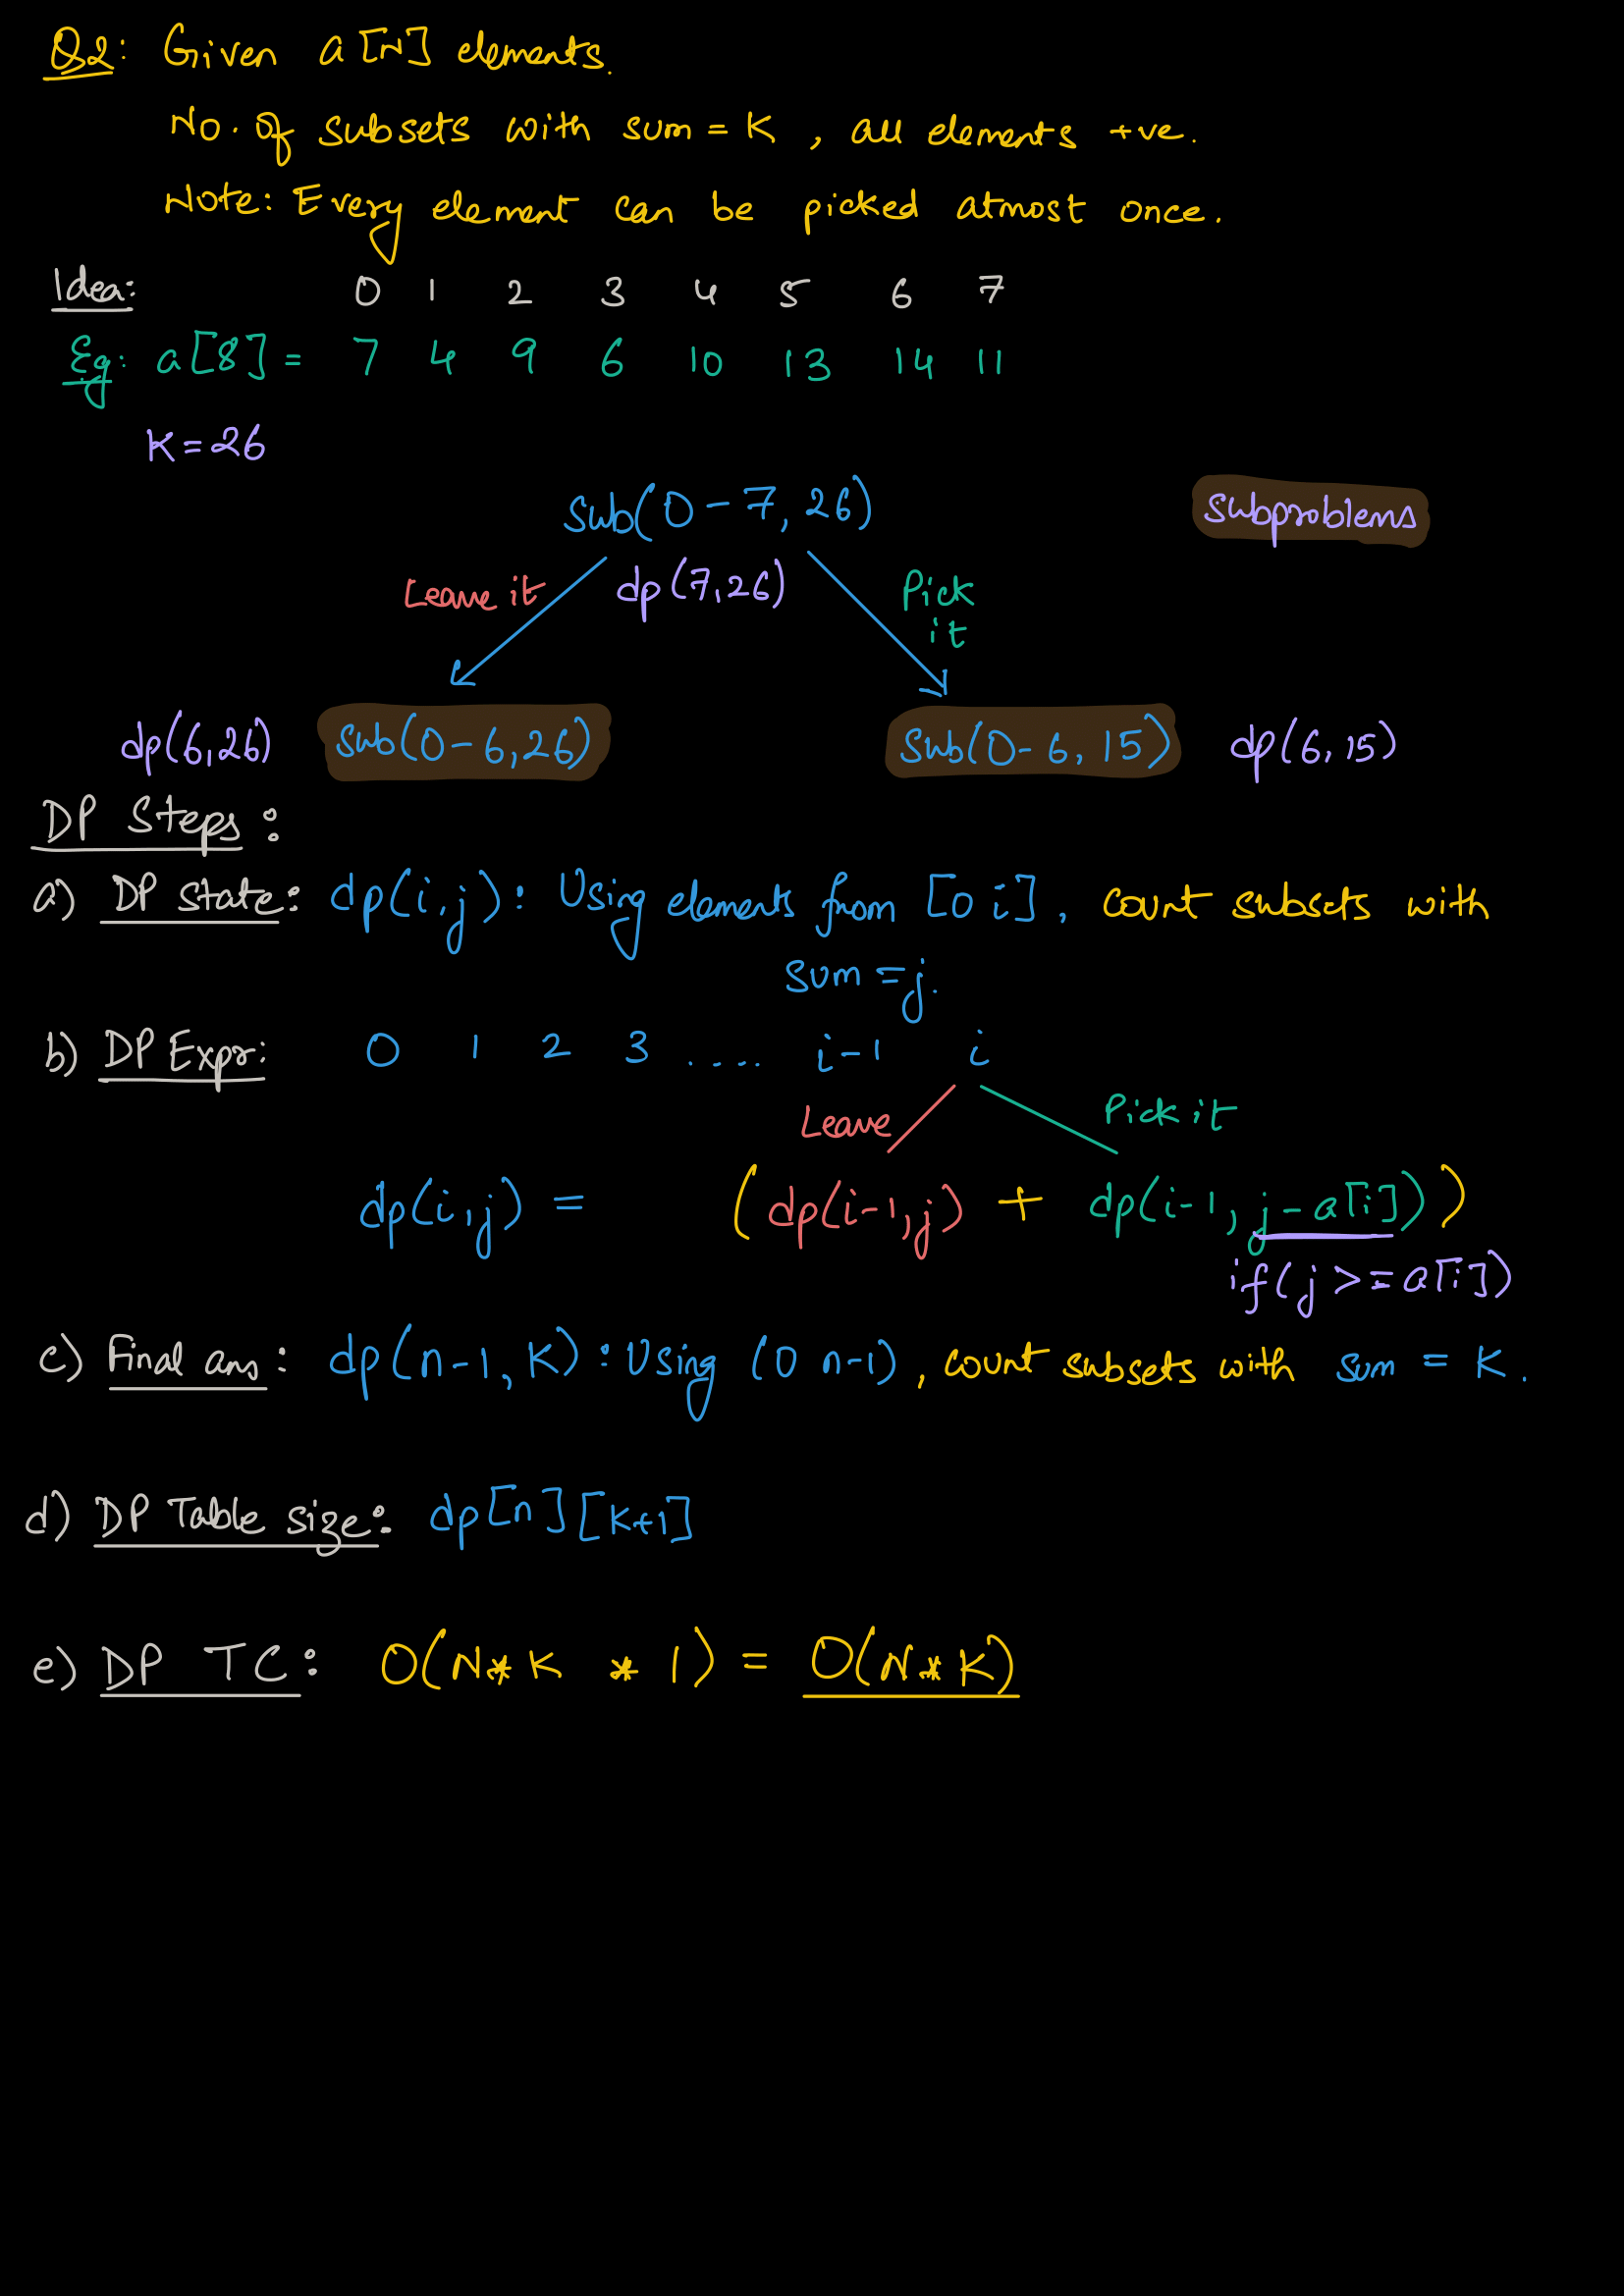 Q2: Given a[N] elements.
No. of subsets with sum = K, all elements +ve.
Note: Every element can be picked atmost once.
Idea: 0 1 2 3 4 5 6 7
Eg: a[8] = 7 4 9 6 10 13 14 11
K = 26
sub(0-7, 26)
subproblems
Leave it
dp(7,26)
Pick it
dp(6,26) sub(0-6,26) sub(0-6, 15) dp(6, 15)
DP Steps:
a) DP state: dp(i,j): Using elements from [0 i], count subsets with
sum = j.
b) DP Expr: 0 1 2 3 .... i-1 i
Leave Pick it
dp(i,j) = (dp(i-1,j) + dp(i-1, j-a[i]))
if(j >= a[i])
c) Final ans: dp(n-1, K): Using (0 n-1), count subsets with sum = K.
d) DP Table size: dp[n][K+1]
e) DP TC: O(N*K * 1) = O(N*K)